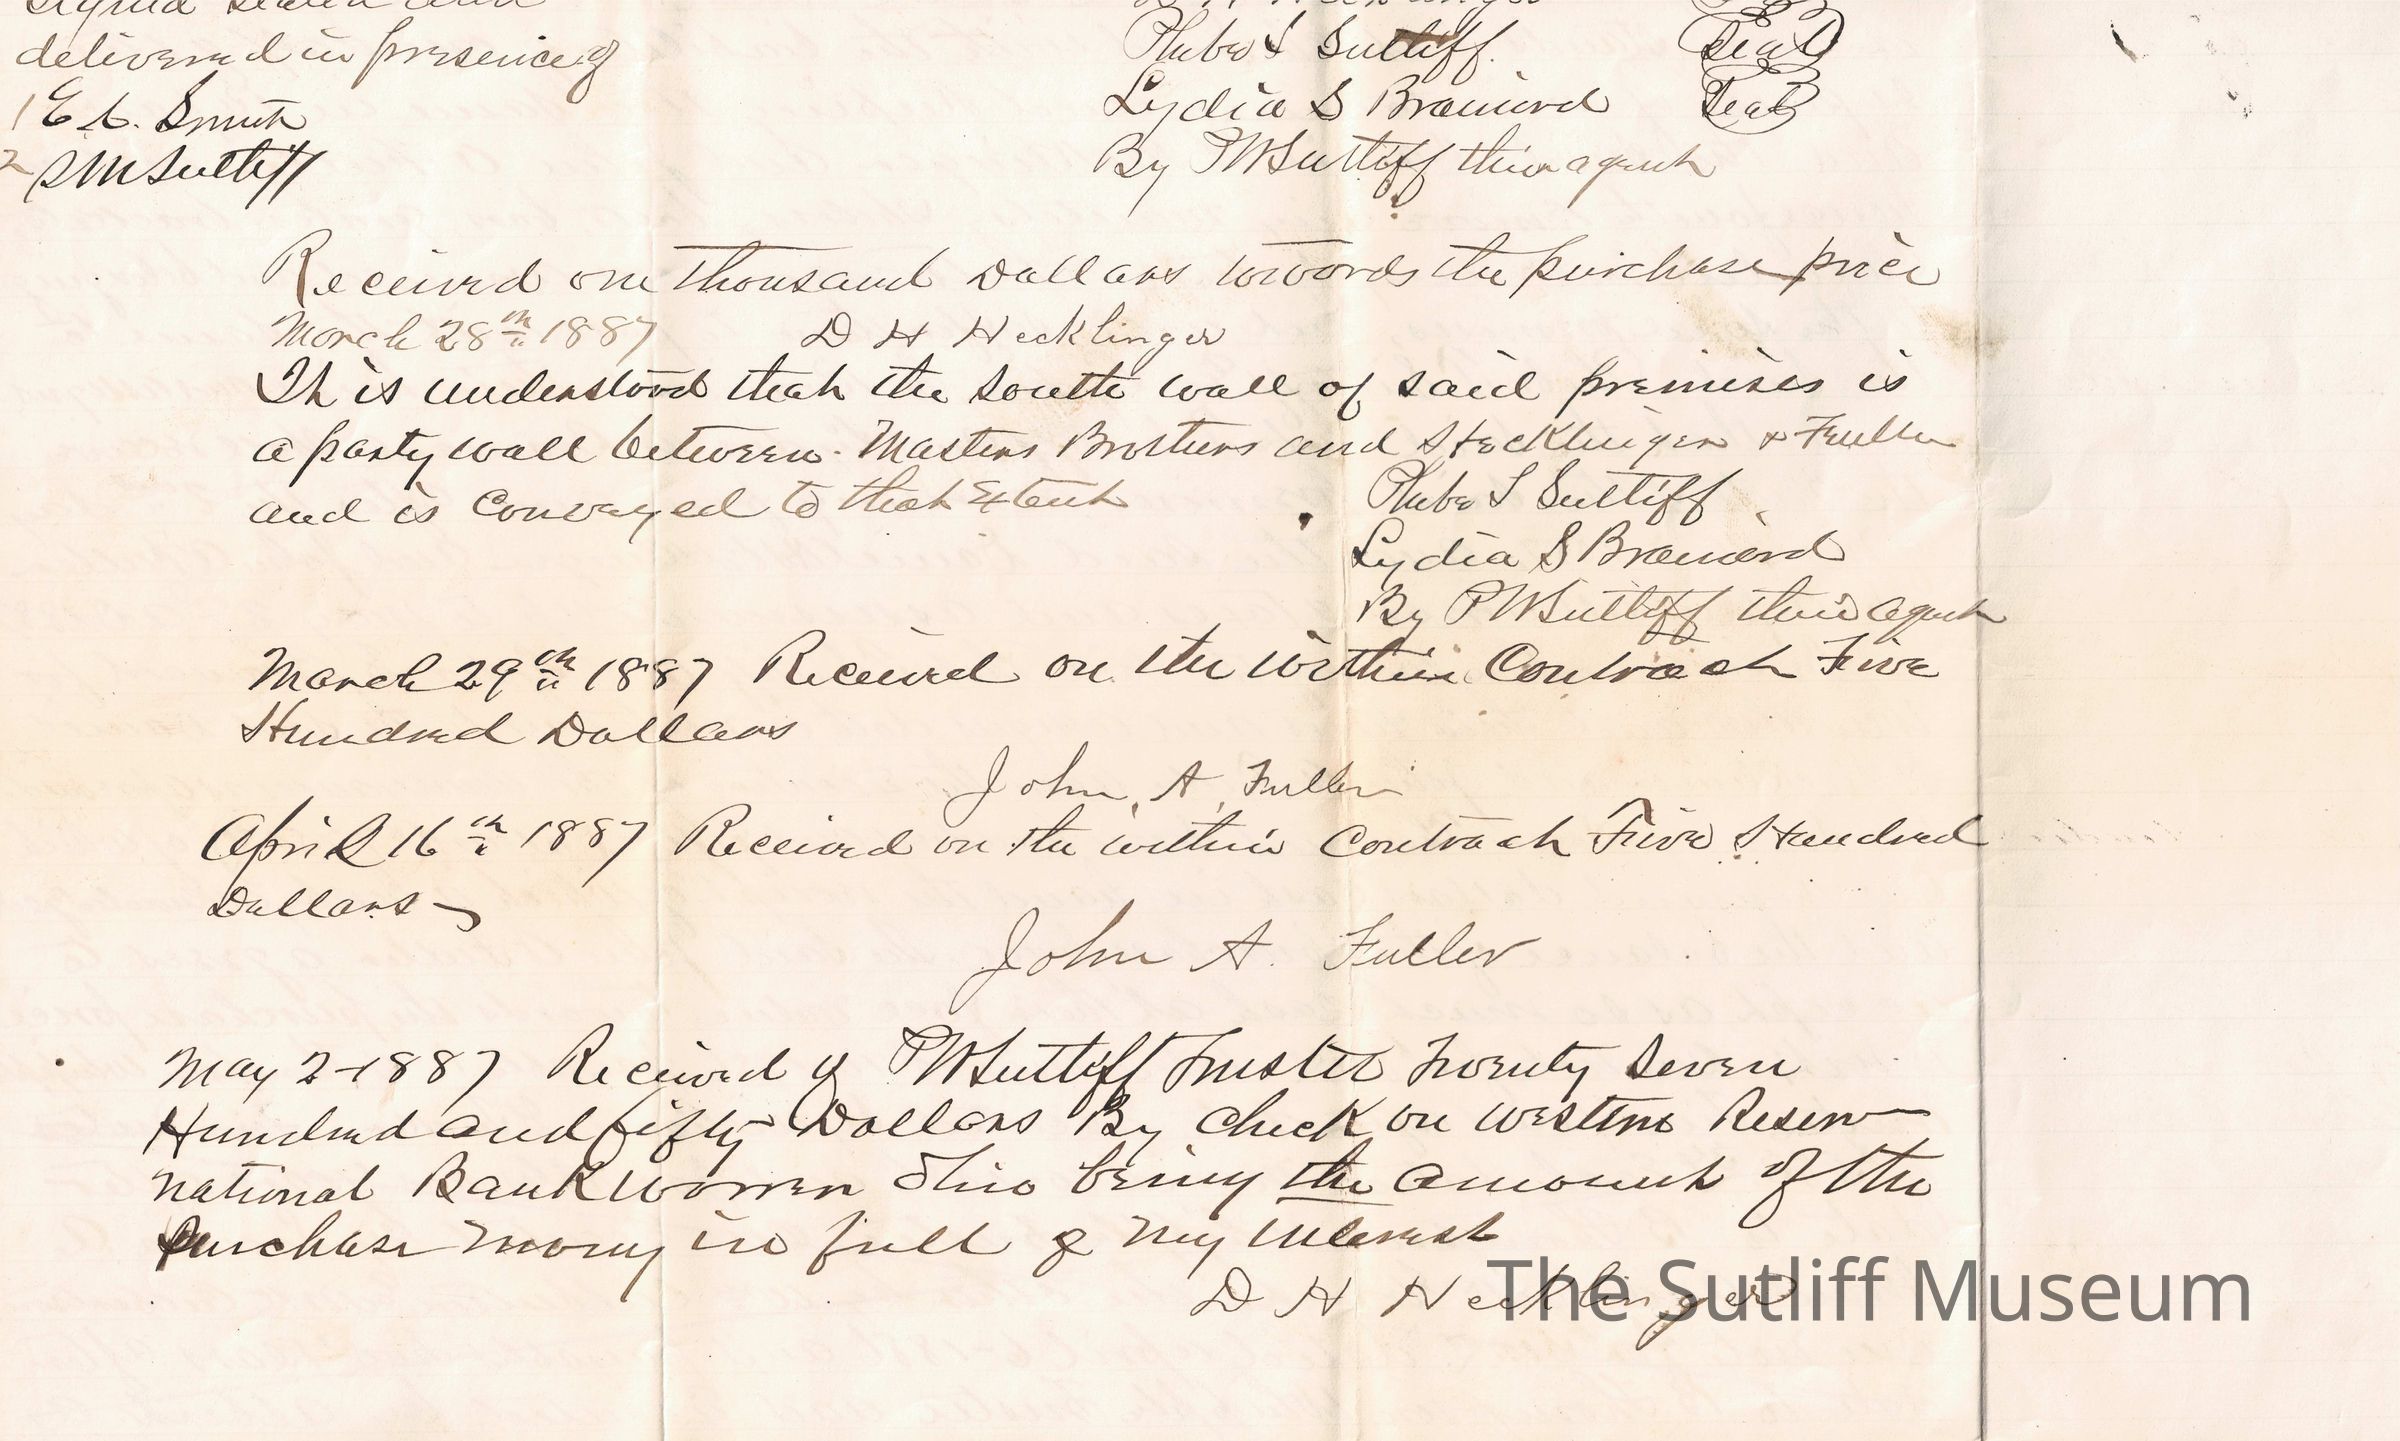 Signed Sealed and
delivered in presence of
1 E. C. Smith
2 S M Sutliff
D H Hecklinger Seal
Phebe L Sutliff. Seal
Lydia S Brainerd Seal
By P W Sutliff their agent
Received one thousand Dollars towards the purchase price
March 28th 1887 D H Hecklinger
It is understood that the South wall of said premises is
a party wall between Masters Brothers and Hecklinger & Fuller
and is Conveyed to that Extent
Phebe L Sutliff
Lydia S Brainerd
By P W Sutliff their agent
March 29th 1887 Received on the within Contract Five
Hundred Dollars
John A Fuller
April 16th 1887 Received on the within Contract Five Hundred
Dollars
John A. Fuller
May 2 - 1887 Received of P W Sutliff Trustee Twenty Seven
Hundred and fifty Dollars By Check on Western Reserve
National Bank Warren Ohio being the amount of the
Purchase Money in full of my interest
D H Hecklinger
The Sutliff Museum